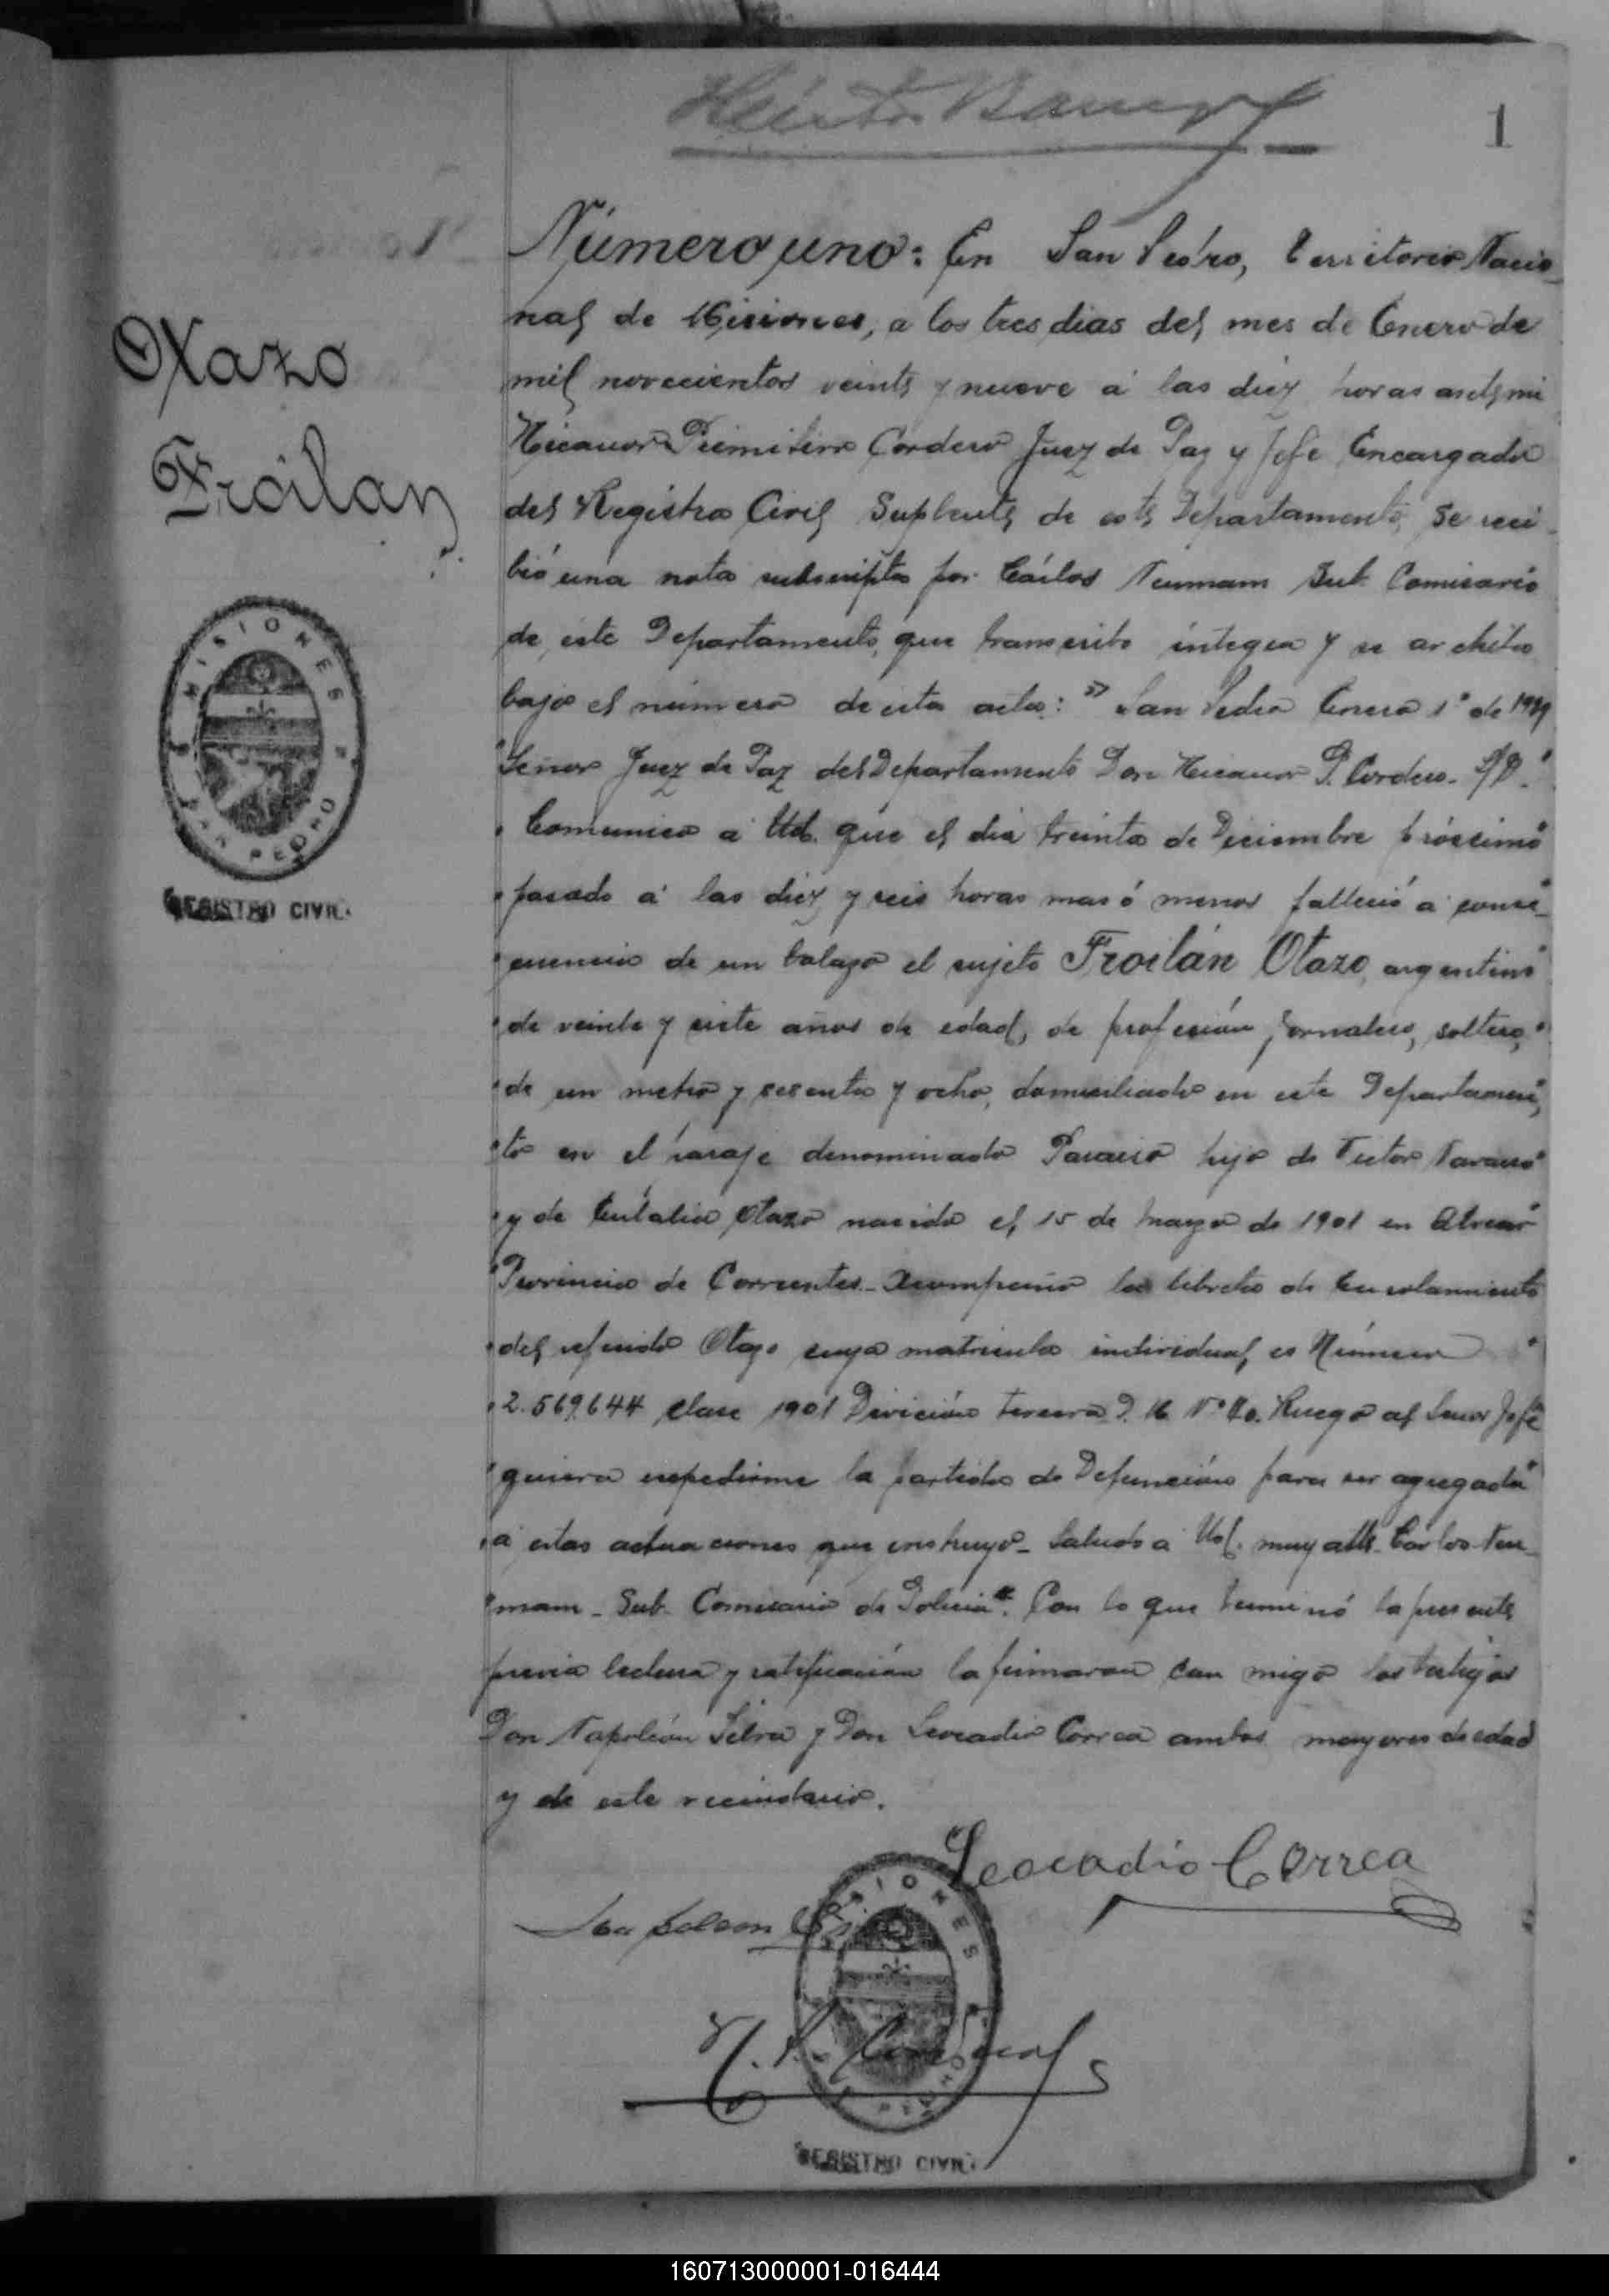 1
Número uno: En San Pedro, Territorio Nacio-
nal de Misiones, a los tres dias del mes de Enero de
mil novecientos veinte y nueve á las diez horas ante mi
Nicanor Primitivo Cordero Juez de Paz y Jefe Encargado
del Registro Civil Suplente de este Departamento, se reci-
bió una nota subscripta por Cárlos Neumam Sub. Comisario
de este Departamento, que transcribo integra y se archiba
bajo el número de esta acta: " San Pedro Enero 1° de 1929
Señor Juez de Paz del Departamento Don Nicanor P. Cordero. S/D.
Comunico a Ud. que el dia treinta de Diciembre próccimo
pasado á las diez y seis horas mas ó menos falleció á conse-
cuencia de un balazo el sujeto Froilán Otazo, argentino
de veinte y siete años de edad, de profesión Jornalero, soltero,
de un metro y sesenta y ocho, domiciliado en este Departamen-
to en el paraje denominado Paraiso hijo de Victor Navarro
y de Eulalia Otazo nacido el 15 de mayo de 1901 en Alvear
Provincia de Corrientes. Acompaño la libreta de Enrolamiento
del referido Otazo cuya matricula individual es Número
2.569.644 clase 1901 División tercera D. 16 N° 40. Ruego al Señor Jefe
quiera expedirme la partida de Defunción para ser agregada
á estas actuaciones que instruyo. Saludo a Ud. muy atte. Carlos Neu-
mam. Sub. Comisario de Policia". Con lo que terminó la presente
previa lectura y ratificación la firmaron con migo los testigos
Don Napoleón Silva y Don Leocadio Correa ambos mayores de edad
y de este vecindario.
Otazo
Froilan
MISIONES
SAN PEDRO
REGISTRO CIVIL
Leocadio Correa
Napoleon
MISIONES
PEDRO
N. P. Cordero
REGISTRO CIVIL
160713000001-016444